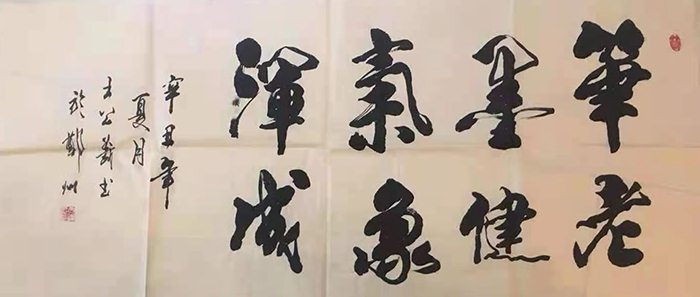 筆老
墨健
氣象
渾成
辛丑年
夏月
王公书
於鄭州